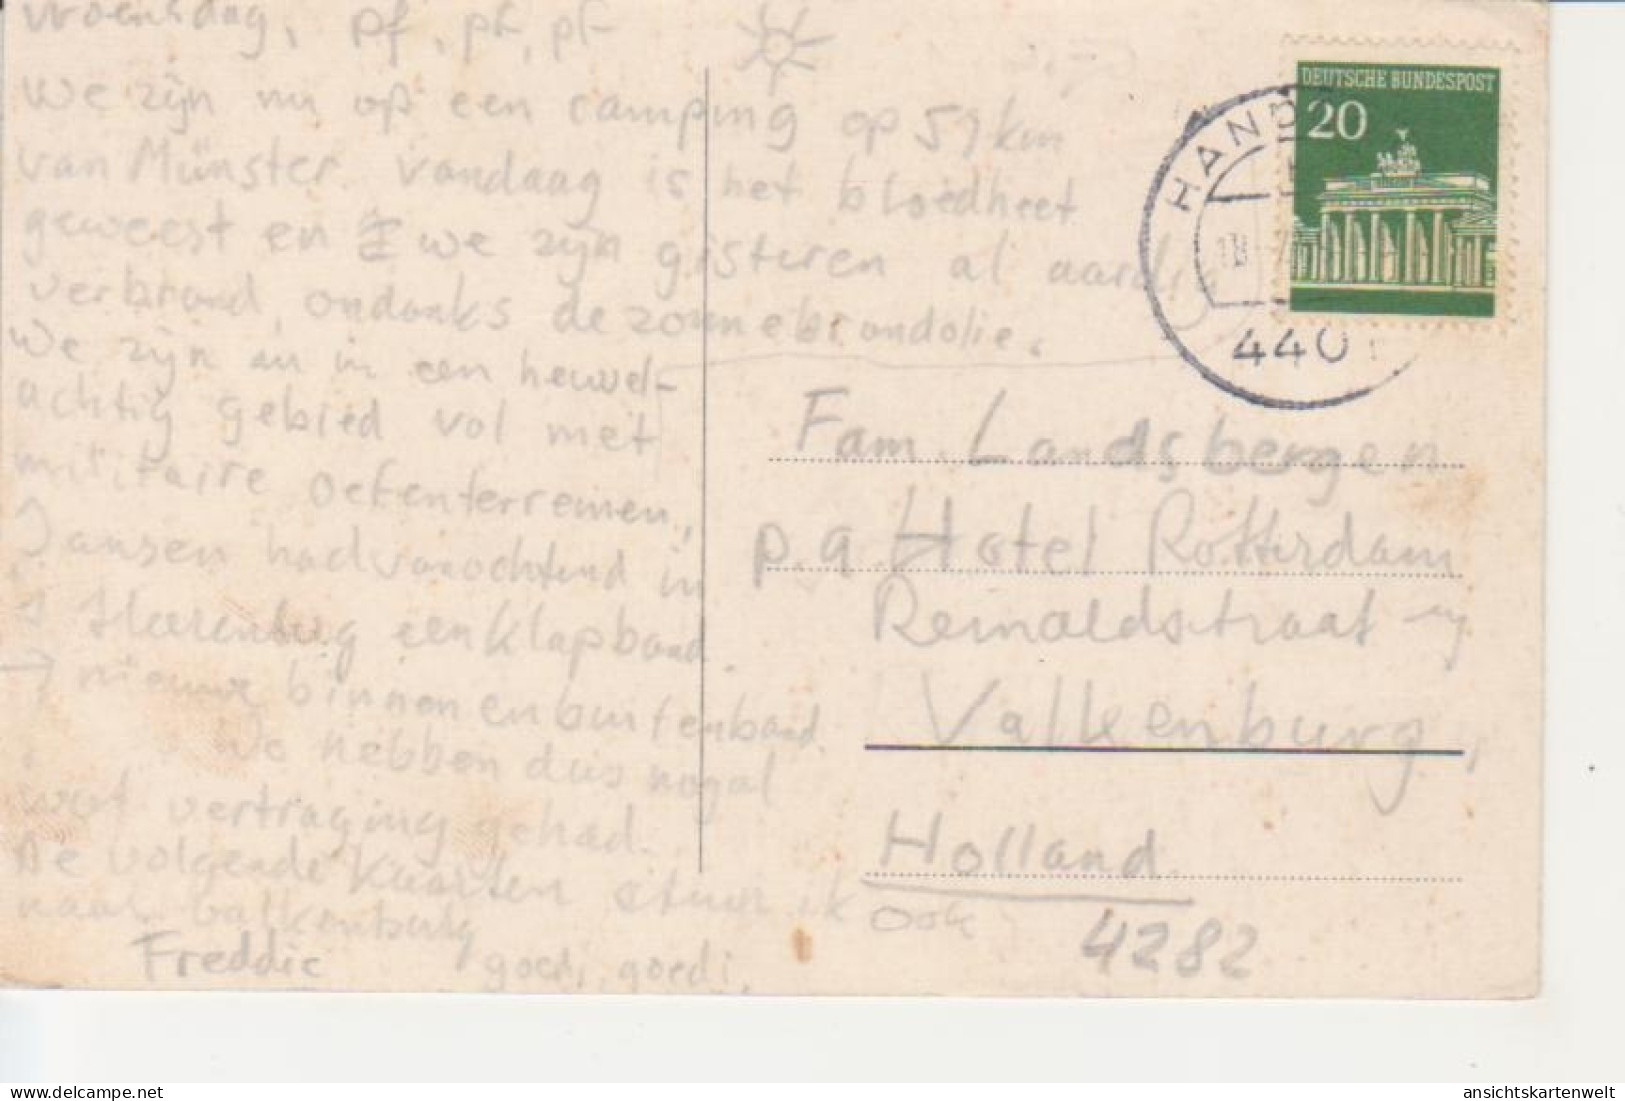 Woensdag, pf, pf, pf
We zijn nu op een camping op 59 km
van Münster. Vandaag is het bloedheet
geweest en we zijn gisteren al aardig
verbrand, ondanks de zonnebrandolie.
We zijn nu in een heuvel-
achtig gebied vol met
militaire oefenterreinen,
Jansen had vanochtend in
een klapband.
→ nieuwe binnen en buitenband
We hebben dus nogal
wat vertraging gehad.
De volgende kaarten stuur ik ook
naar Valkenburg
Freddie goedi, goedi,
DEUTSCHE BUNDESPOST
20
HAND
4401
Fam. Landsbergen
p.a. Hotel Rotterdam
Reinaldstraat
Valkenburg,
Holland.
4282
https://www.delcampe.net
ansichtskartenwelt